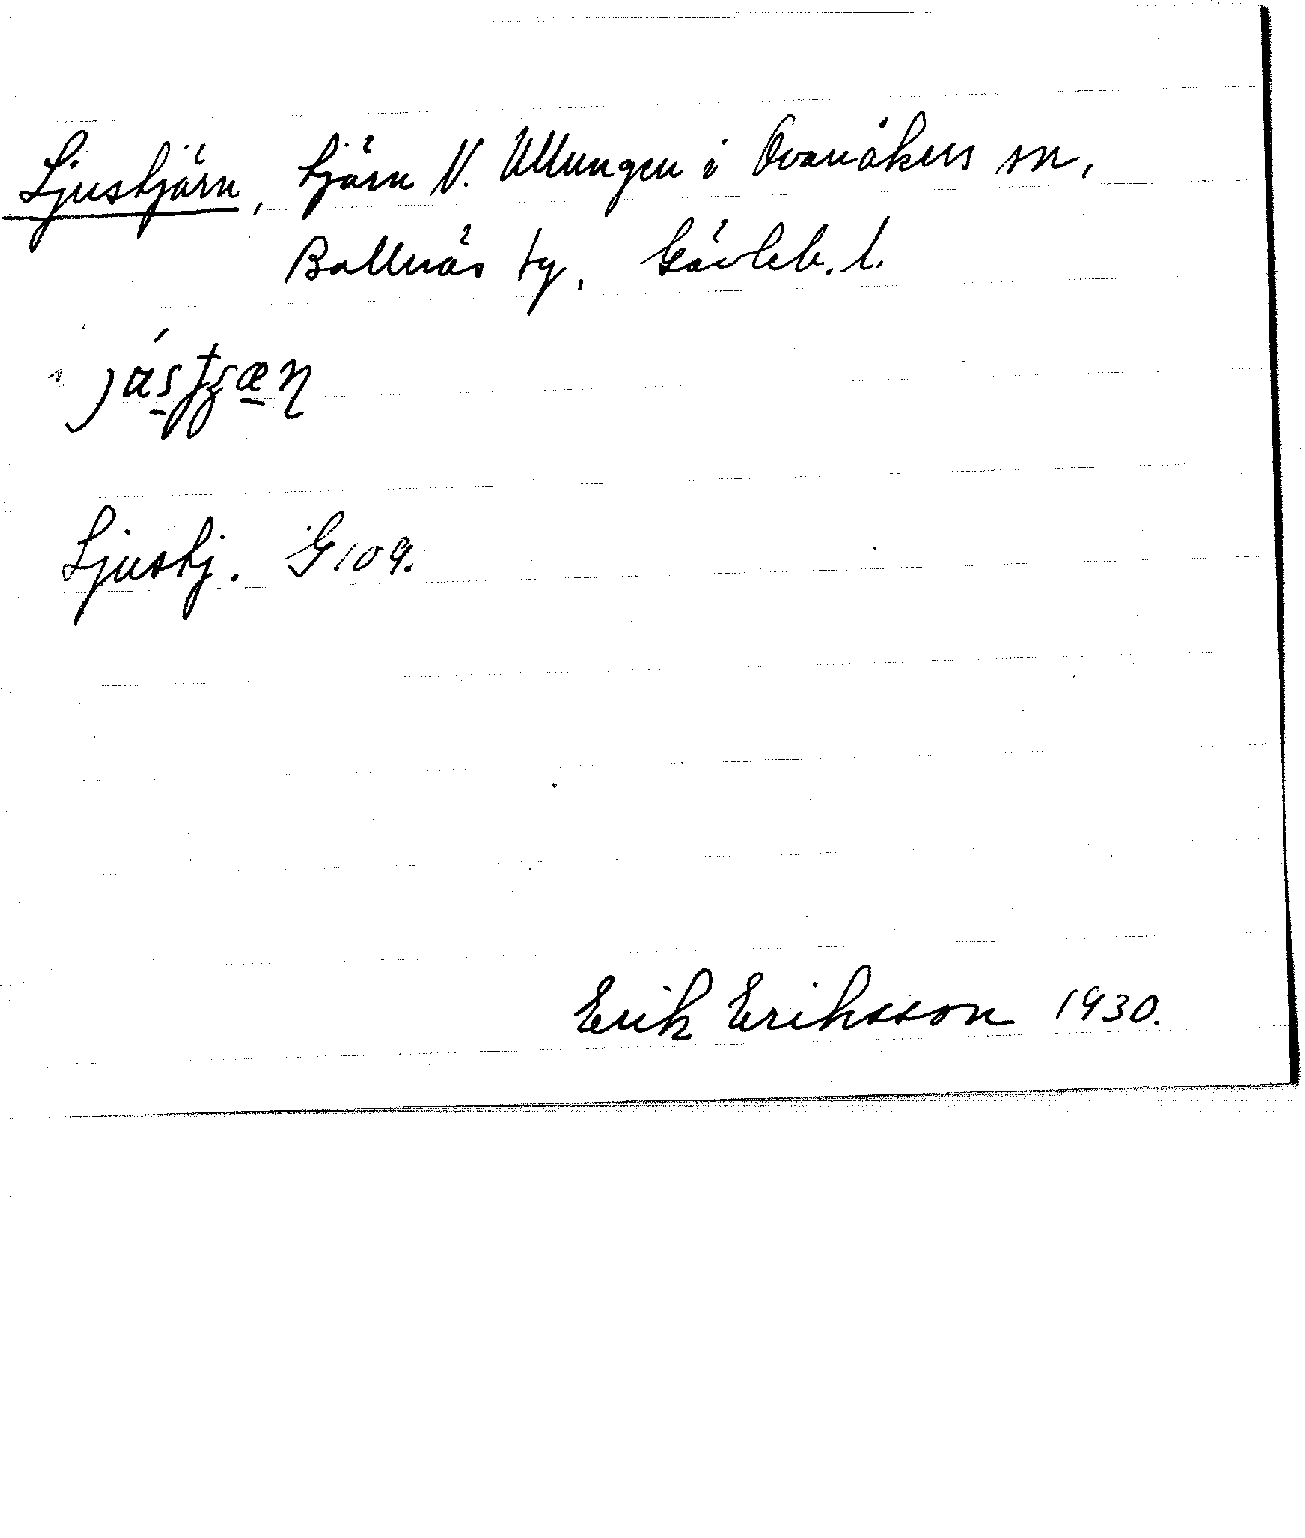 Ljustjärn, tjärn N. Ullungen i Ovanåkers sn,
Bollnäs tg, Gävleb. l.
Ljustj. G 109.
Erik Eriksson 1930.